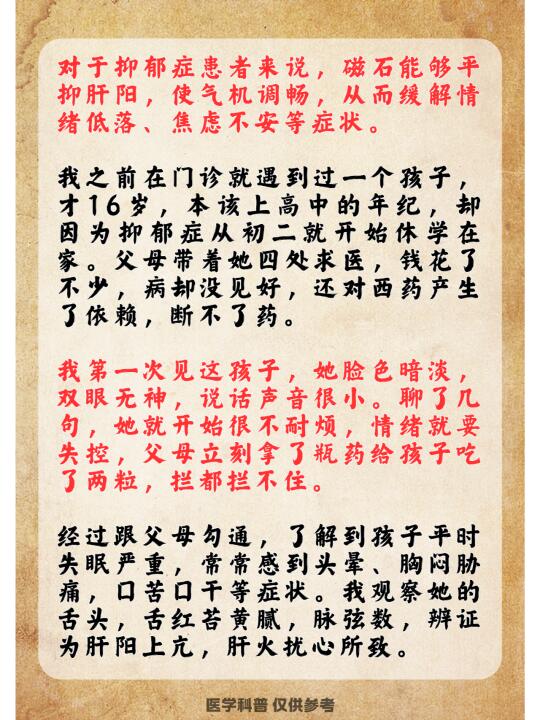 对于抑郁症患者来说，磁石能够平
抑肝阳，使气机调畅，从而缓解情
绪低落、焦虑不安等症状。
我之前在门诊就遇到过一个孩子，
才16岁，本该上高中的年纪，却
因为抑郁症从初二就开始休学在
家。父母带着她四处求医，钱花了
不少，病却没见好，还对西药产生
了依赖，断不了药。
我第一次见这孩子，她脸色暗淡，
双眼无神，说话声音很小。聊了几
句，她就开始很不耐烦，情绪就要
失控，父母立刻拿了瓶药给孩子吃
了两粒，拦都拦不住。
经过跟父母勾通，了解到孩子平时
失眠严重，常常感到头晕、胸闷胁
痛，口苦口干等症状。我观察她的
舌头，舌红苔黄腻，脉弦数，辨证
为肝阳上亢，肝火扰心所致。
医学科普 仅供参考